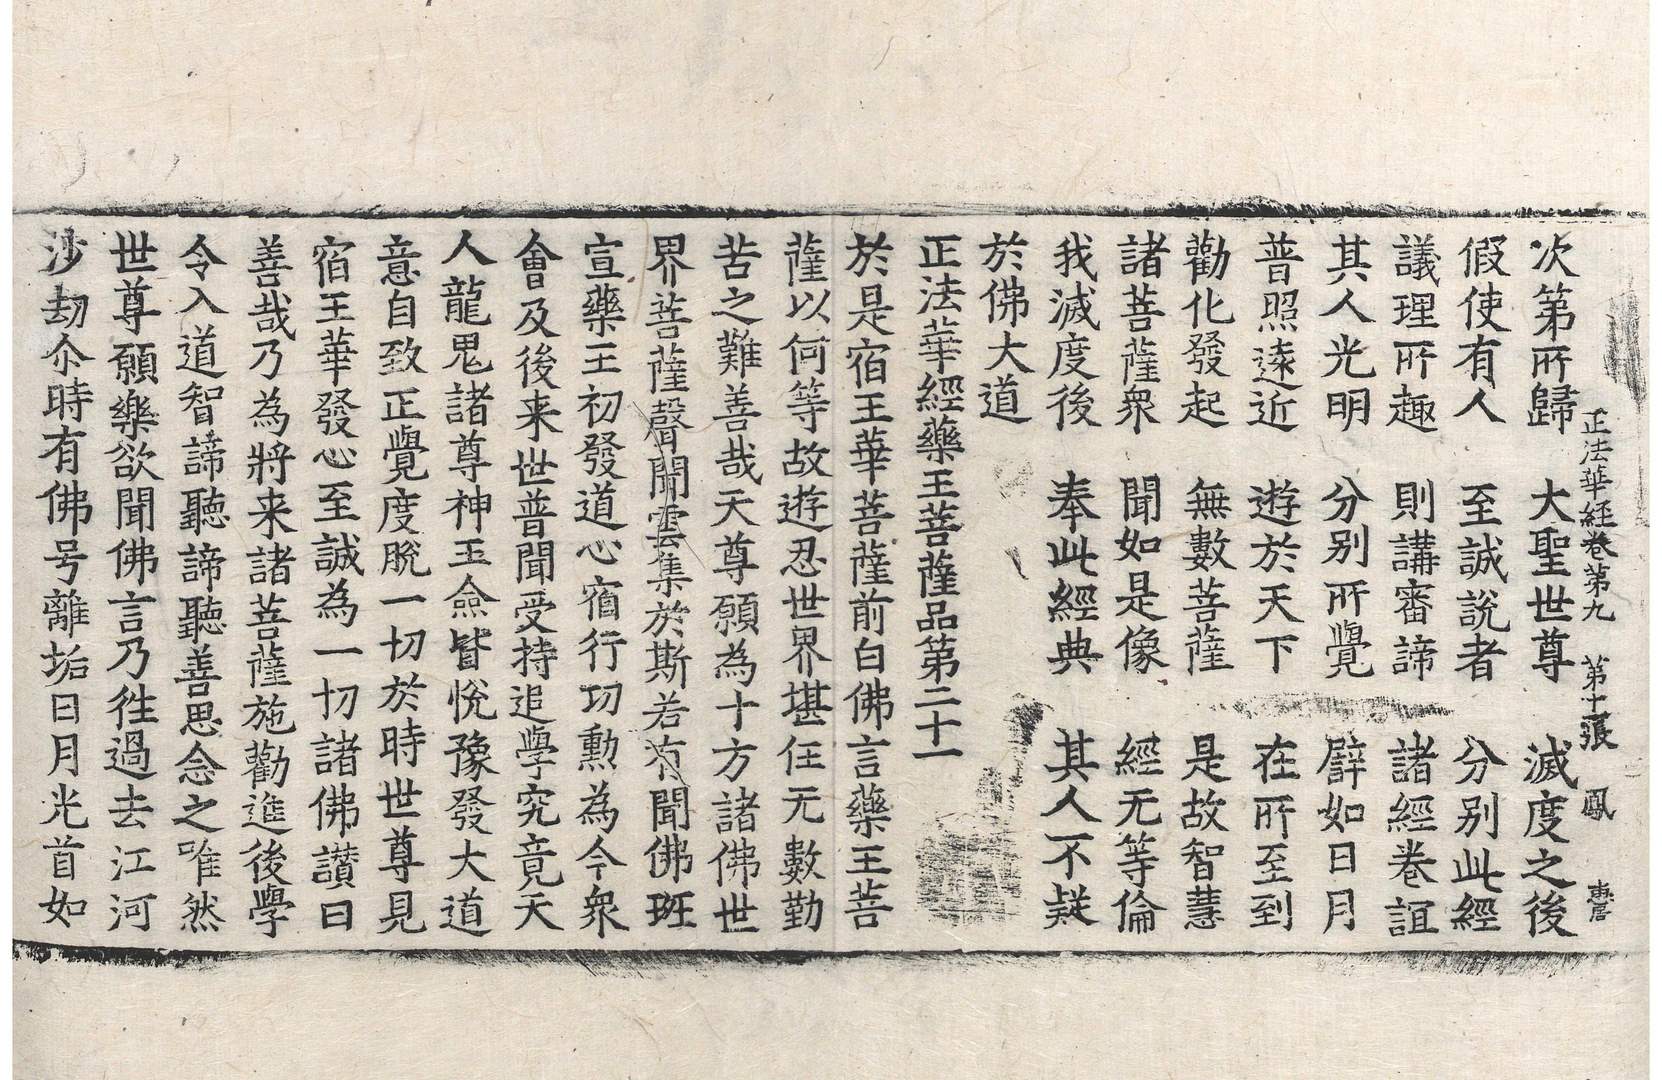 正法華経卷第九　第十張　鳳　惠居
次第所歸　大聖世尊　滅度之後
假使有人　至誠說者　分別此經
議理所趣　則講審諦　諸經卷誼
其人光明　分別所覺　譬如日月
普照遠近　遊於天下　在所至到
勸化發起　無數菩薩　是故智慧
諸菩薩衆　聞如是像　經无等倫
我滅度後　奉此經典　其人不疑
於佛大道
正法華經藥王菩薩品第二十一
於是宿王華菩薩前白佛言藥王菩
薩以何等故遊忍世界堪任无數勤
苦之難善哉天尊願為十方諸佛世
界菩薩聲聞雲集於斯若有聞佛班
宣藥王初發道心宿行功勳為今衆
會及後来世普聞受持追學究竟天
人龍鬼諸尊神王僉皆悅豫發大道
意自致正覺度脫一切於時世尊見
宿王華發心至誠為一切諸佛讃曰
善哉乃為將来諸菩薩施勸進後學
令入道智諦聽諦聽善思念之唯然
世尊願樂欲聞佛言乃徃過去江河
沙劫尒時有佛号離垢日月光首如